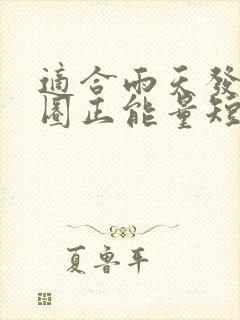 適合雨天發
圈正能量短
夏鲁平